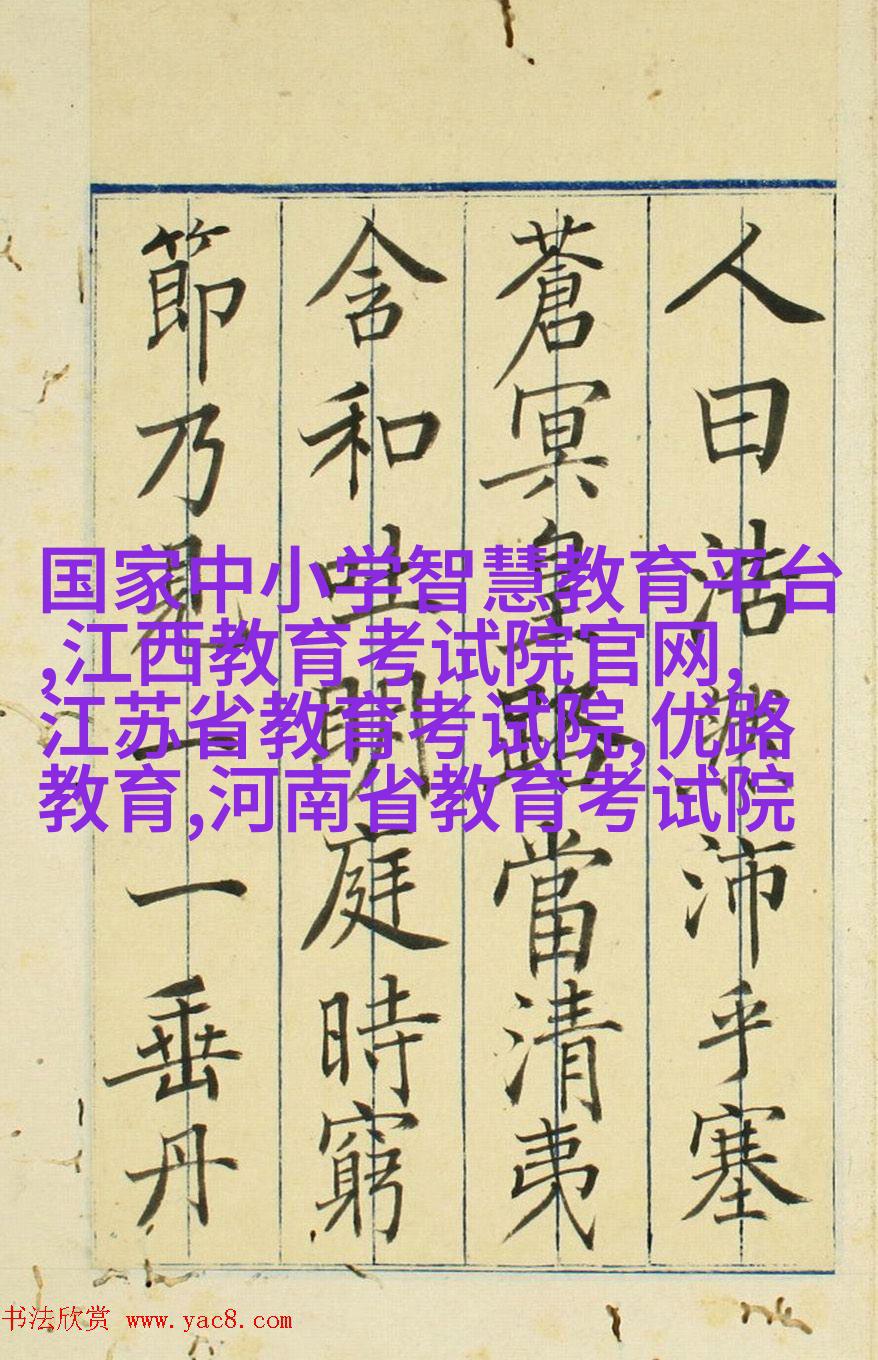 人曰浩然沛乎塞
蒼冥皇路當清夷
含和吐明庭時窮
節乃見一一垂丹
国家中小学智慧教育平台
,江西教育考试院官网,
江苏省教育考试院,优路
教育,河南省教育考试院
书法欣赏 www.yac8.com